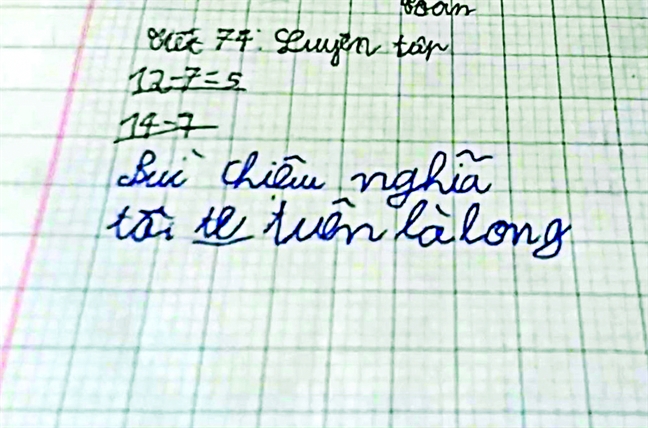 Toán
Tiết 74: Luyện tập
12-7=5
14-7
Bui chiêu nghĩa
tôi tê tuên là long